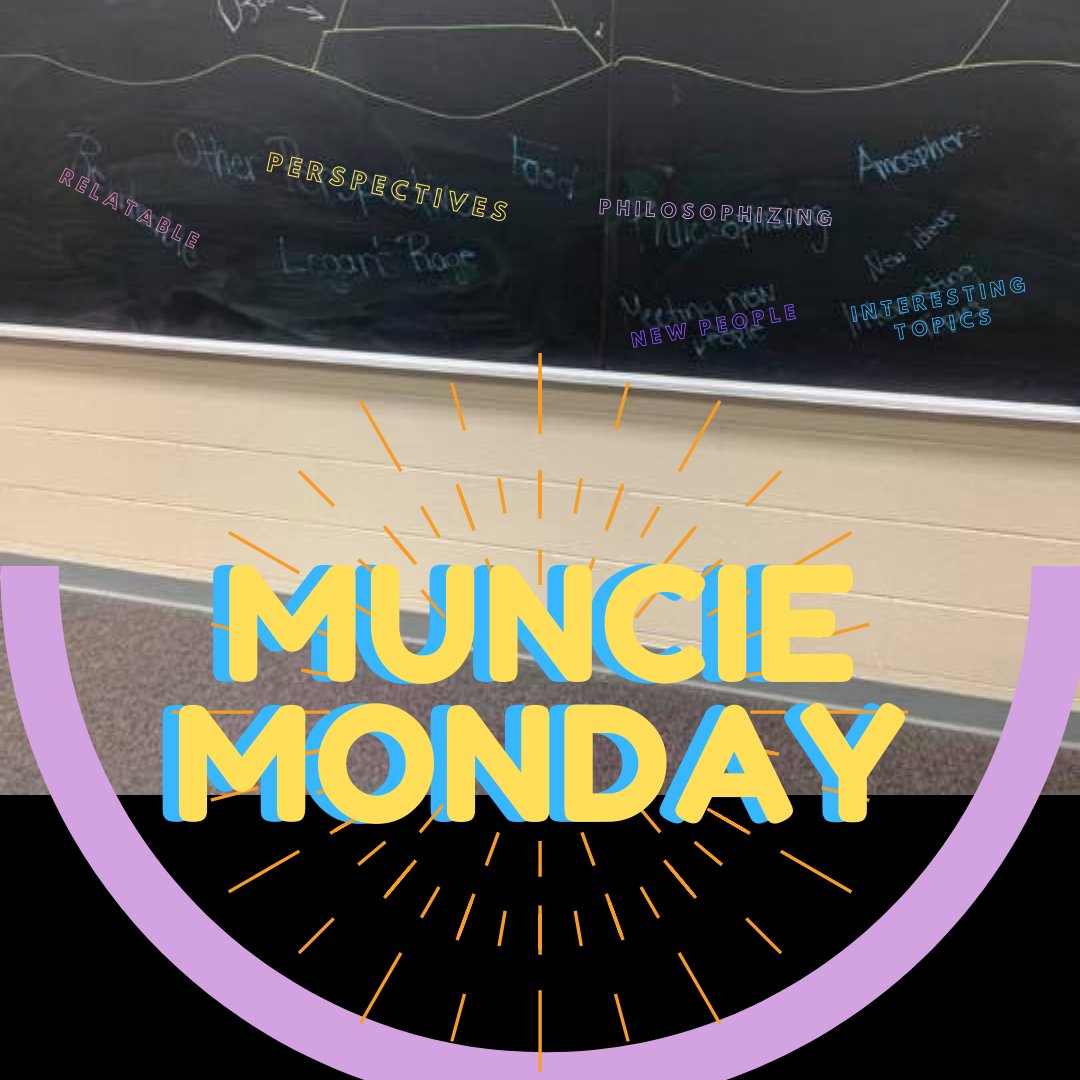 Other
PERSPECTIVES
Food
Amospher
RELATABLE
PHILOSOPHIZING
Philosophizing
Logan's Rage
New Ideas
Meeting new
people
NEW PEOPLE
INTERESTING
TOPICS
MUNCIE
MONDAY